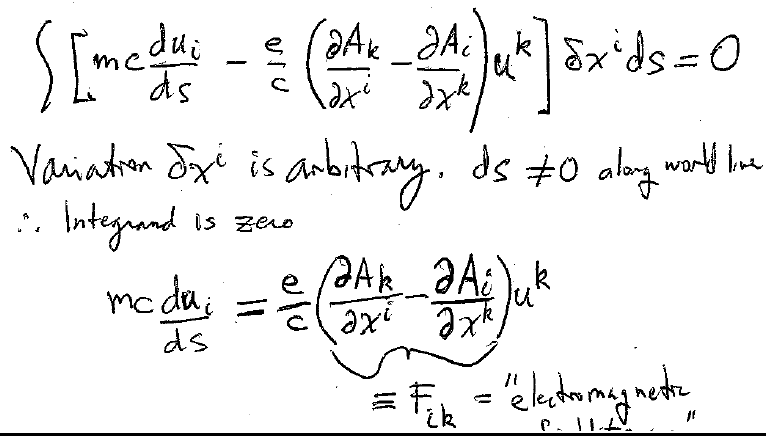 ∫ [mc du_i/ds − e/c (∂A_k/∂x^i − ∂A_i/∂x^k) u^k] δx^i ds = 0
Variation δx^i is arbitrary. ds ≠ 0 along world line
∴ Integrand is zero
mc du_i/ds = e/c (∂A_k/∂x^i − ∂A_i/∂x^k) u^k
≡ F_ik = "electromagnetic